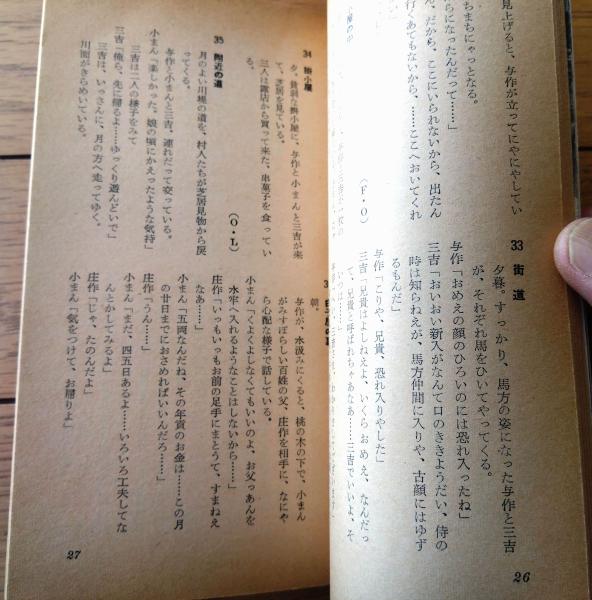 見上げると、与作が立ってにやにやしてい
ちまちにゃっとなる。
らになったんだって……」
ん、だから、ここにいられないから、出たん
行くあてもないから、……ここへおいてくれ
(F・O)
33 街道
夕暮。すっかり、馬方の姿になった与作と三吉
が、それぞれ馬をひいてやってくる。
与作「おめえの顔のひろいのには恐れ入ったね」
三吉「おいおい新入がなんて口のききようだい、侍の
時は知らねえが、馬方仲間に入りや、古顔にはゆず
るもんだ」
与作「こりや、兄貴、恐れ入りやした」
三吉「兄貴はよしねえよ、いくらおめえ、なんだっ
て、兄貴と呼ばれちゃあなあ……三吉でいいよ、そ
26
34 掛小屋
夕。貧弱な掛小屋に、与作と小まんと三吉が来
て、芝居を見ている。
三人は露店から買って来た、串菓子を食ってい
る。
(O・L)
35 附近の道
月のよい川堤の道を、村人たちが芝居見物から戻
ってくる。
与作と小まんと三吉、連れだって交っている。
小まん「楽しかった。娘の頃にかえったような気持」
三吉は二人の様子をみて
三吉「俺ら、先に帰るよ……ゆっくり遊んどいで」
三吉は、いっさんに、月の方へ走ってゆく。
川面がきらめいている。
朝。
与作が、水汲みにくると、桃の木の下で、小まん
がみすぼらしい百姓の父、庄作を相手に、なにや
ら心配な様子で話している。
小まん「くよくよしなくてもいいのよ、お父つあんを
水牢へ入れるようなことはしないから……」
庄作「いつもいつもお前の足手にまとうて、すまねえ
なあ……」
小まん「五両なんだね、その年貢のお金は……この月
の廿日までにおさめればいいんだろ……」
庄作「うん……」
小まん「まだ、四五日あるよ……いろいろ工夫してな
んとかしてみるよ」
庄作「じゃ、たのんだよ」
小まん「気をつけて、お帰りよ」
27